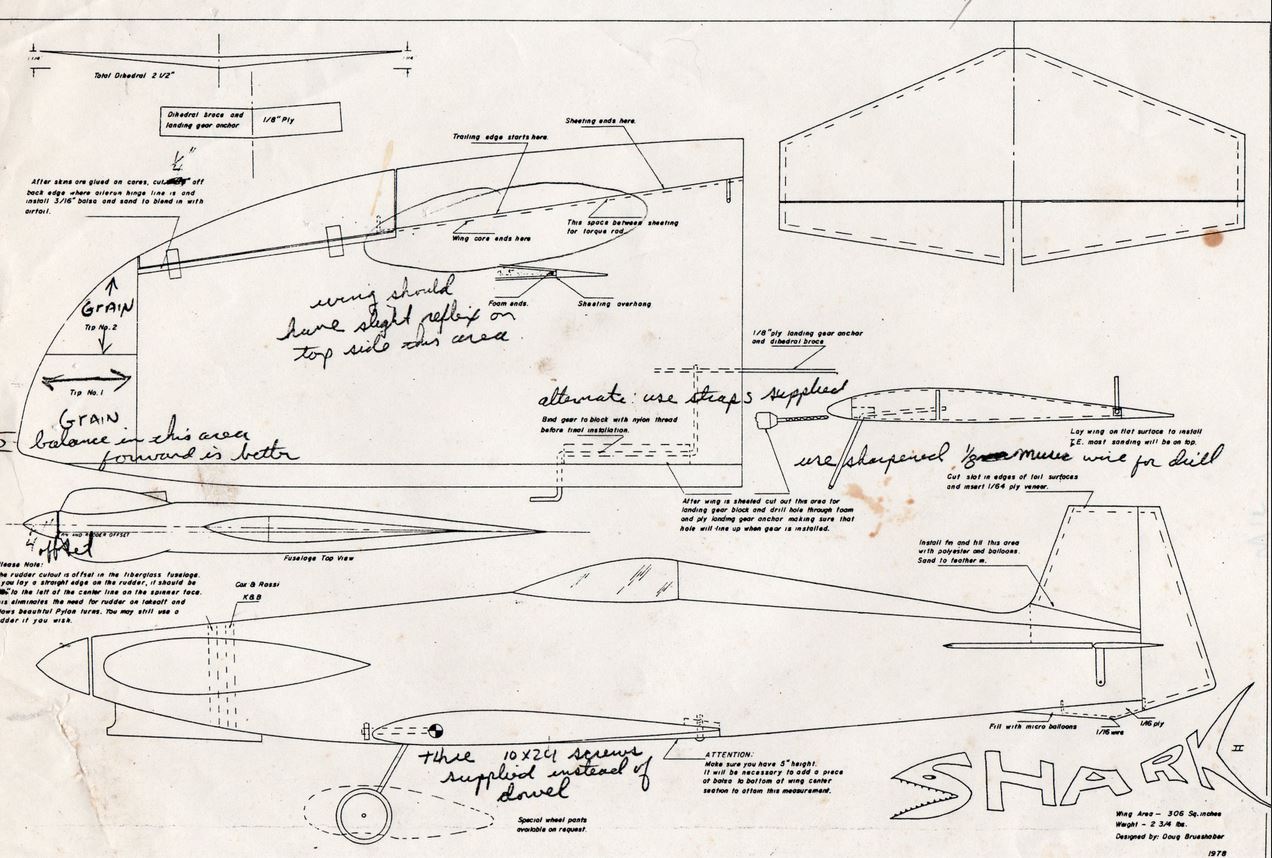 Total Dihedral 2 1/2"
Dihedral brace and
landing gear anchor
1/8" Ply
1/4"
After skins are glued on cores, cut off
back edge where aileron hinge line is and
install 3/16" balsa and sand to blend in with
airfoil.
Trailing edge starts here.
Sheeting ends here.
Wing core ends here
This space between sheeting
for torque rod.
Foam ends.
Sheeting overhang
GRAIN
Tip No. 2
Tip No. 1
GRAIN
wing should
have slight reflex on
top side this area
balance in this area
forward is better
1/8" ply landing gear anchor
and dihedral brace
alternate: use straps supplied
Bind gear to block with nylon thread
before final installation.
Lay wing on flat surface to install
T.E. most sanding will be on top.
use sharpened 1/8 music wire for drill
Cut slot in edges of tail surfaces
and insert 1/64 ply veneer.
After wing is sheeted cut out this area for
landing gear block and drill hole through foam
and ply landing gear anchor making sure that
hole will line up when gear is installed.
AND RUDDER OFFSET
1/4 offset
Fuselage Top View
Install fin and fill this area
with polyester and balloons.
Sand to feather in.
lease Note:
he rudder cutout is offset in the fiberglass fuselage.
you lay a straight edge on the rudder, it should be
to the left of the center line on the spinner face.
is eliminates the need for rudder on takeoff and
lows beautiful Pylon turns. You may still use a
dder if you wish.
Cox & Rossi
K&B
Fill with micro balloons
1/16 wire
1/16 ply
three 10X24 screws
supplied instead of
dowel
ATTENTION:
Make sure you have 5" height.
It will be necessary to add a piece
of balsa to bottom of wing center
section to attain this measurement.
Special wheel pants
available on request.
SHARK II
Wing Area - 306 Sq.inches
Weight - 2 3/4 lbs.
Designed by: Doug Brueshaber
1978